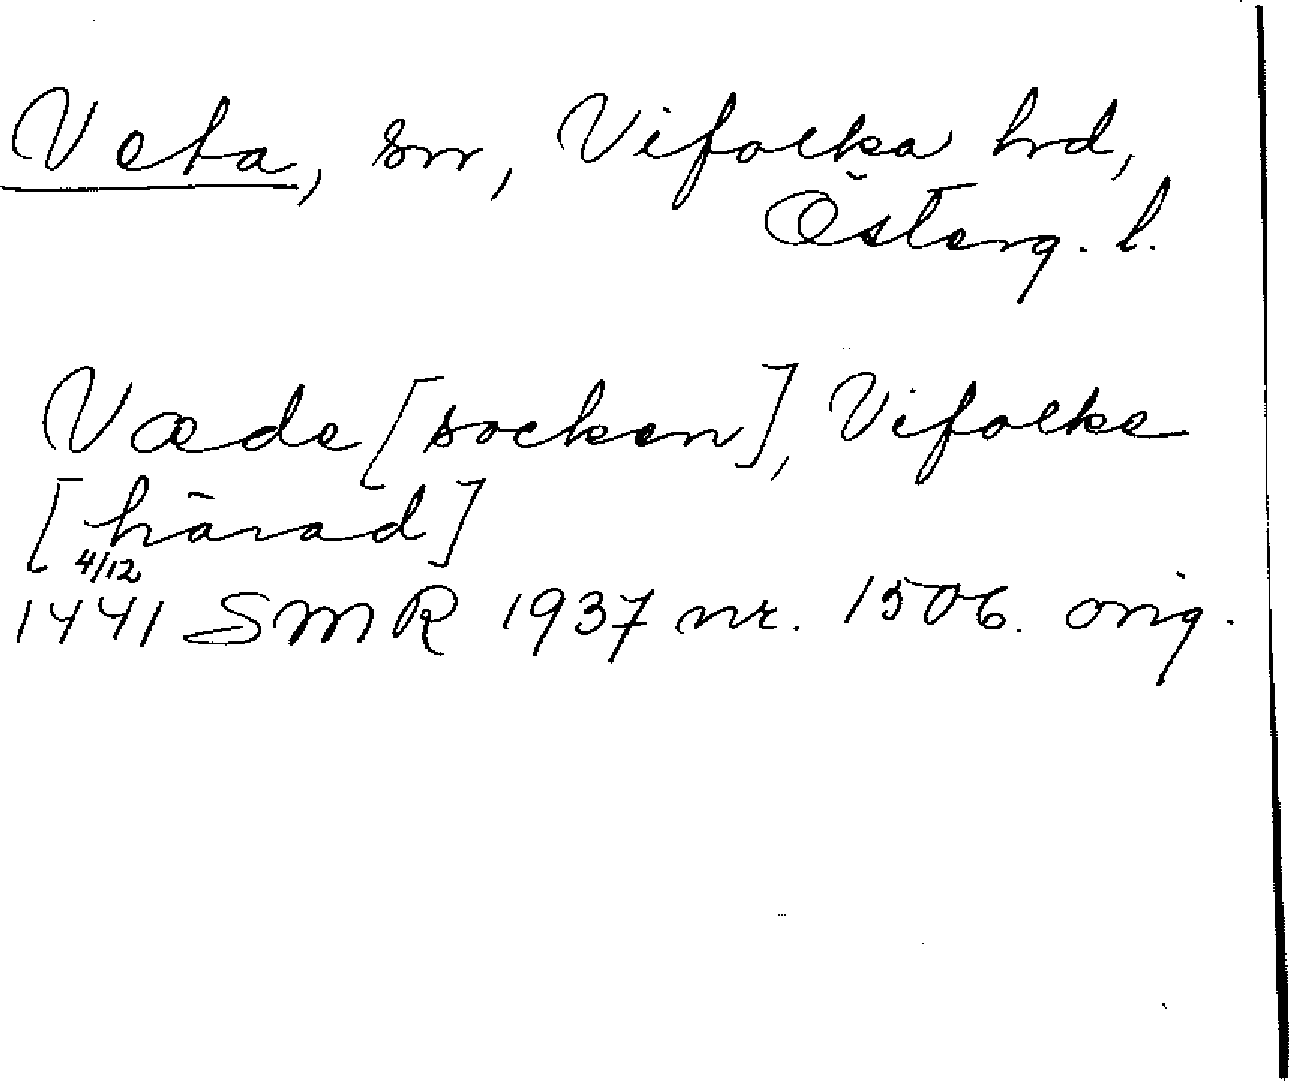 Veta, sn, Vifolka hrd,
Österg. l.
Væde [socken], Vifolke
[härad]
4/12
1441 SMR 1937 nr. 1506. orig.